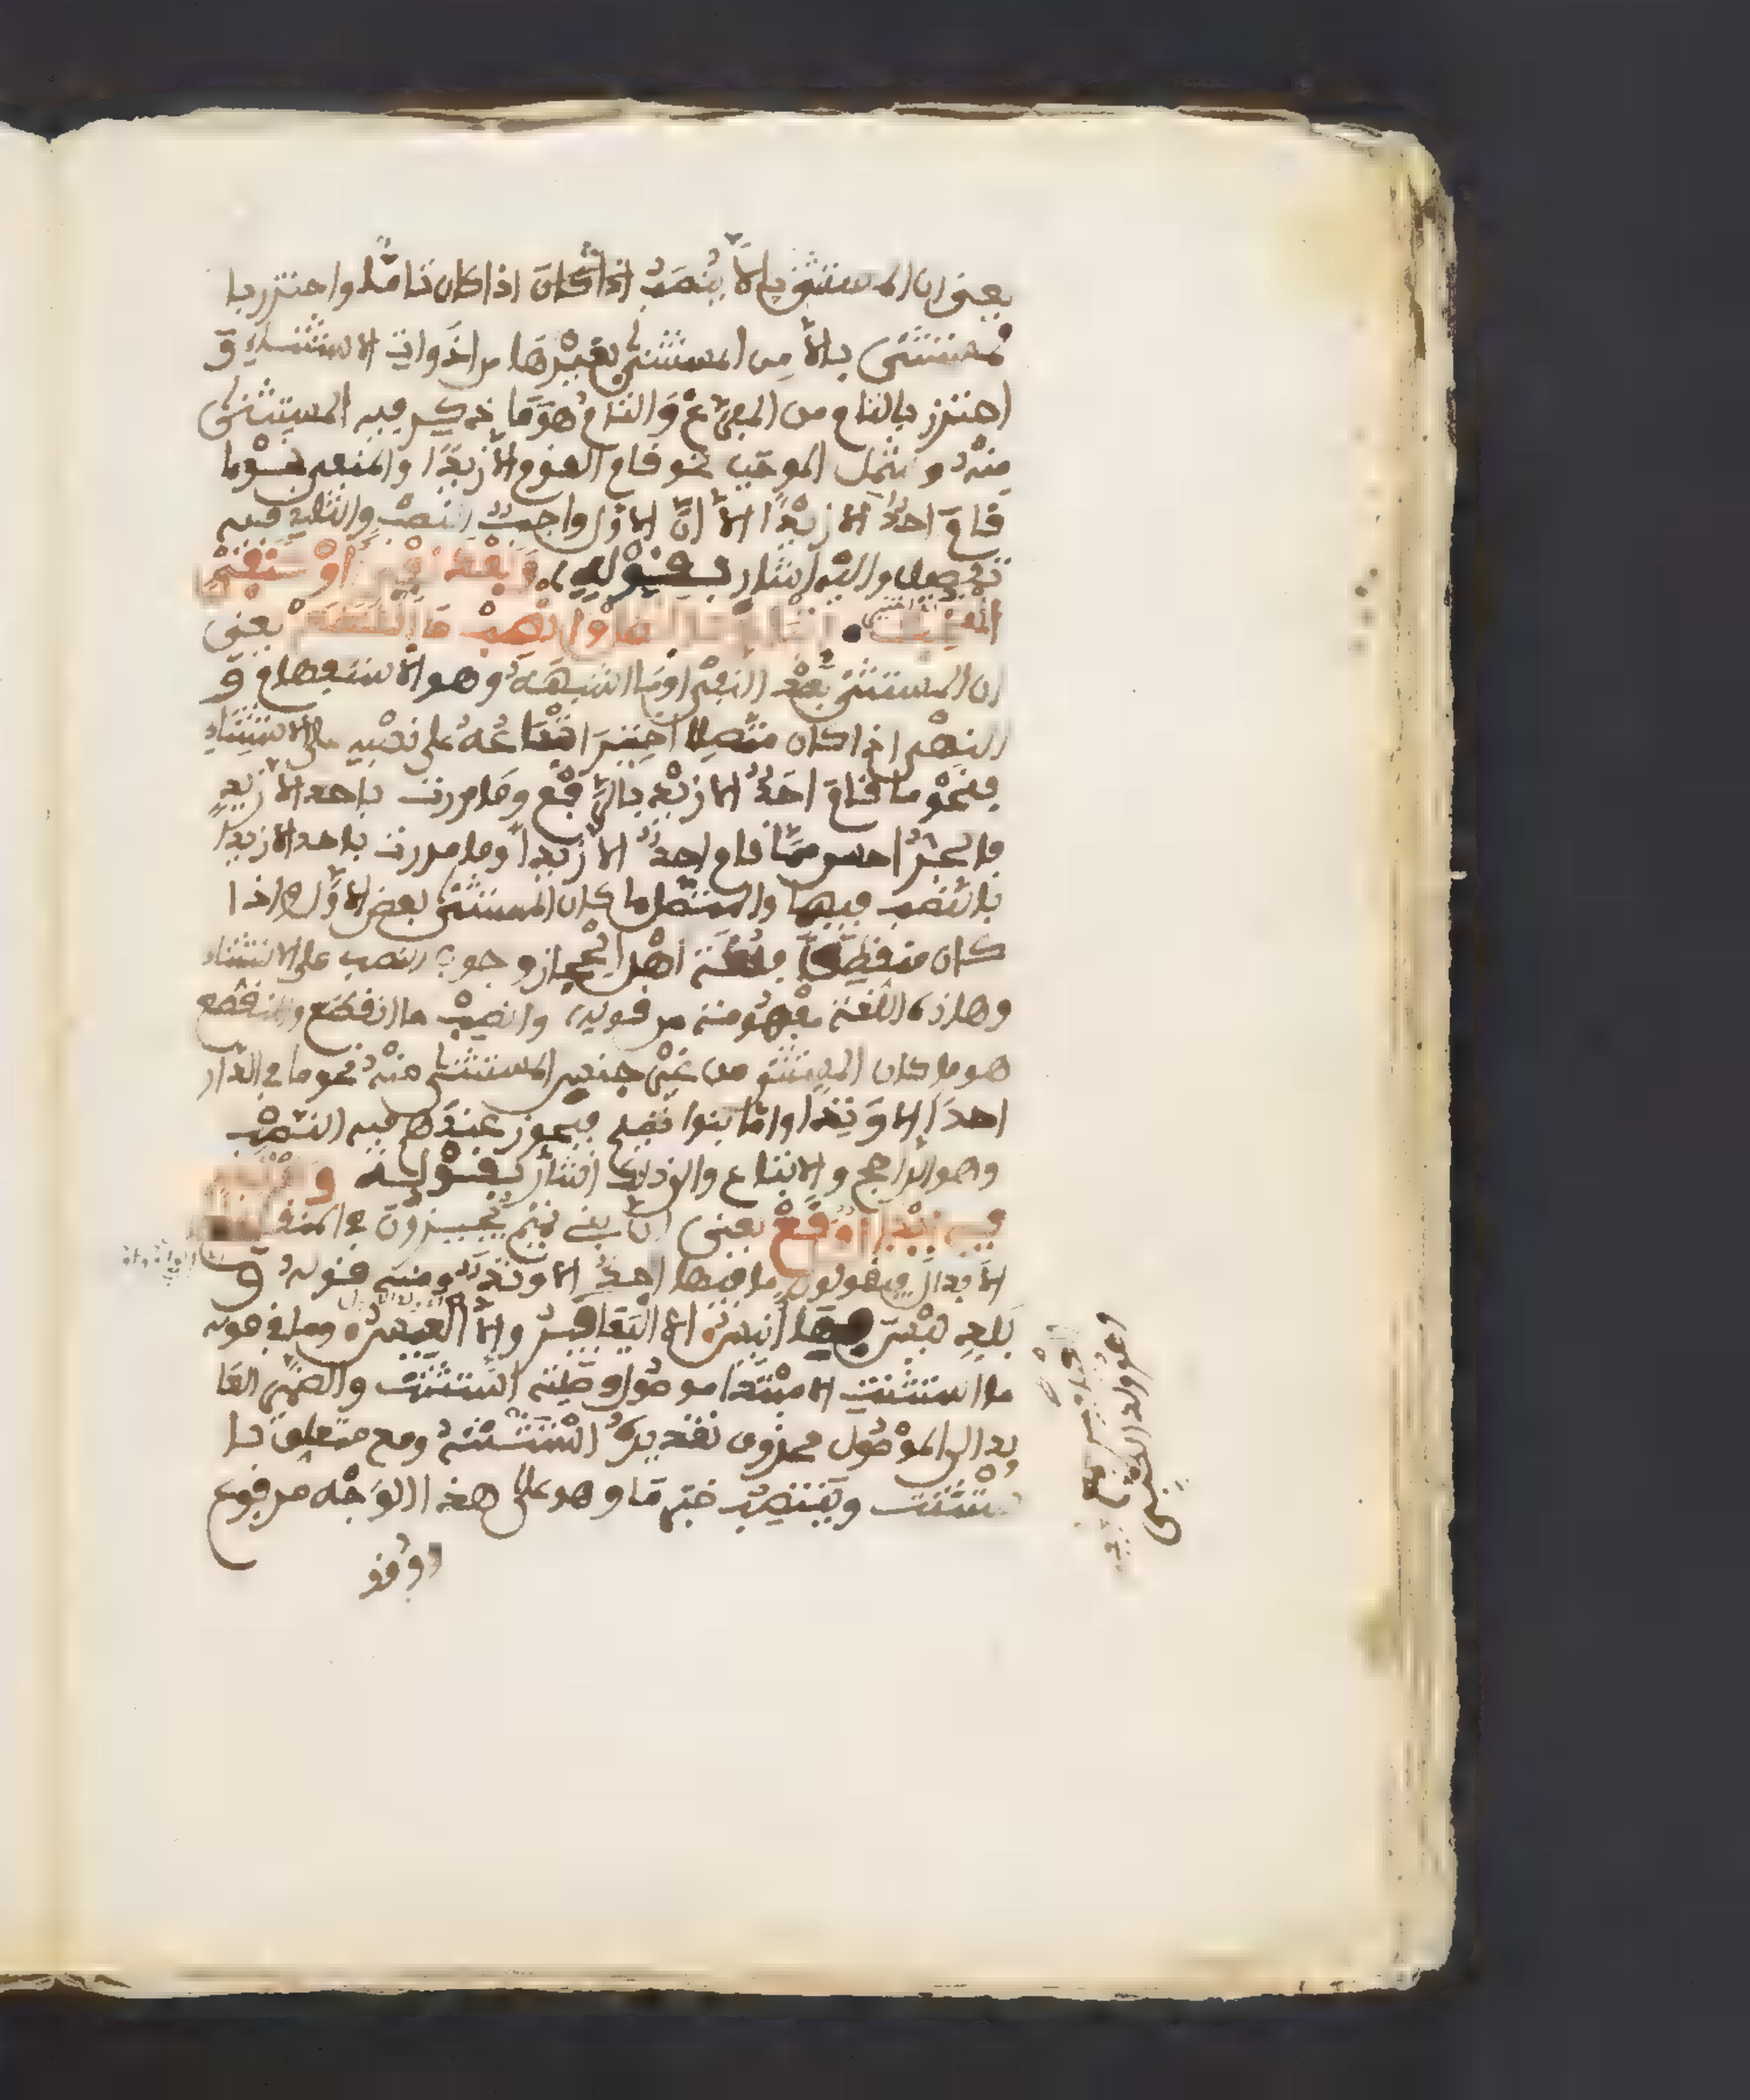 يعنى ان المستثنى بالاَّ يُنصَبُ اذا كَانَ اذا كان تامًّا واحترز با
لمستثنى بالاَّ مِن المستثنى بغَيْرِهَا من اَدَوَاتِ الاستثناءِ وَ
احترز بالتام من المفرَّغ وَالتامُّ هوَمَا ذكر فيه المستثنى
مِنْهُ وشمل الموجَب نحو قام القوم الاَّ زيدًا والمنفى نحْوما
قامَ احدٌ الا زيْدًا الاَّ انَّ الاول واجبُ النصْبِ والثانى فيه
تفصيل واليْه اشار بقَوْلِهِ وَبَعْدَ نَفْىٍ اَوْ كَنَفْىٍ
انتُخِبْ اتْبَاعُ مَا اتَّصَلَ وانْصِبْ مَا انْقَطَعْ يعنى
ان المستثنى بَعْدَ النفْىِ اومَا اشبهَهُ وهو الاستفهام وَ
النهْى اذا كان متَّصِلا اختيرَ اتْبَاعُهُ على نصْبِهِ على الاستثناءِ
فنحْو ما قامَ احَدٌ الا زيْدٌ بالرَّفْع وَما مررت باحد الاَّ زيدٍ
بالجرِّ احسن ممَّا قام احدٌ الاَّ زيدًا وما مررت باحد الا زيدًا
بالنَّصْبِ فيهما والمتَّصل ما كان المستثنى بعضَ الاوَّل واذا
كان منقطِعًا فلُغَة اهْل الحِجاز وجوب النصب على الاستثناء
وهذه اللُّغة مفْهُومة من قوله وانصِبْ ما انقطَع والمنقطع
هو ما كان المستثنى من غيْرِ جنس المستثنى منْهُ نحو ما فى الدَّار
احدٌ اِلا وَتِدًا وامَّا بنوا تميم فيجوز عِنْدَهم فيه النَّصْبُ
وهو الراجح والاتباع والى ذلك اشَارَ بقَوْلِه وَعَنْ تَمِيمٍ
فِيهِ اِبْدَالٌ وَقَعْ يعنى اَنَّ بنى تميم يُجيزُونَ فى المنقطع
الاَبدال فيقولون ما فيها احدٌ الا وتدٌ ومنه قولهُ وَ
بَلدةٍ ليْسَ بِهَا اَنِيسُ الاَّ اليَعَافِيرُ وَاِلاَّ العِيسُ وما فى قوله
ما استثنت الا مبْتَدأ موصُول وصِلَته اسْتَثْنَتْ والضَّمير العَا
يد الى الموْصُول محذوف تقديرُهُ اسْتَثْنَتْهُ ومع متعلِّق با
سْتَثْنَت ويَنتصِبُ خبر مَا وهو على هذا الوَجْه مرفوع
وُقف